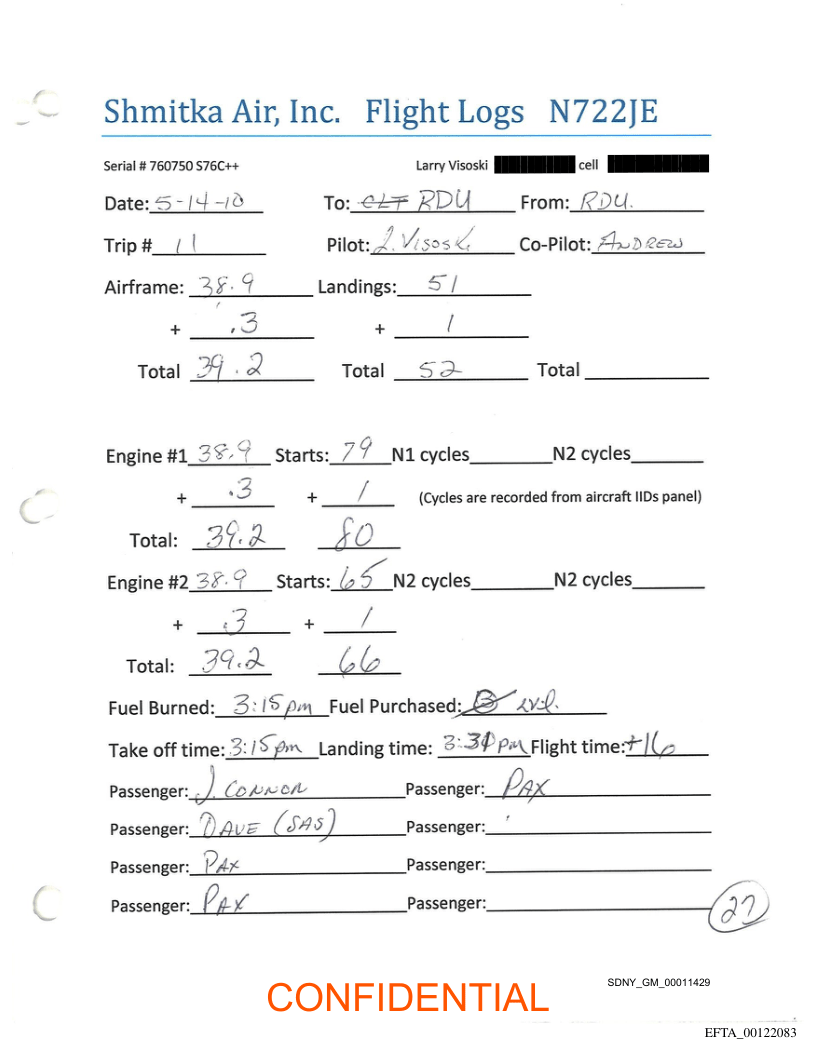 Shmitka Air, Inc. Flight Logs N722JE
Serial # 760750 S76C++ Larry Visoski cell
Date: 5-14-10 To: CLT RDU From: RDU.
Trip # 11 Pilot: L. Visoski Co-Pilot: ANDREW
Airframe: 38.9 Landings: 51
+ .3 + 1
Total 39.2 Total 52 Total
Engine #1 38.9 Starts: 79 N1 cycles N2 cycles
+ .3 + 1 (Cycles are recorded from aircraft IIDs panel)
Total: 39.2 80
Engine #2 38.9 Starts: 65 N2 cycles N2 cycles
+ .3 + 1
Total: 39.2 66
Fuel Burned: 3:15pm Fuel Purchased:
Take off time: 3:15pm Landing time: 3:31pm Flight time: +16
Passenger: J. CONNOR Passenger: PAX
Passenger: DAVE (SAS) Passenger:
Passenger: PAX Passenger:
Passenger: PAX Passenger:
27
CONFIDENTIAL
SDNY_GM_00011429
EFTA_00122083